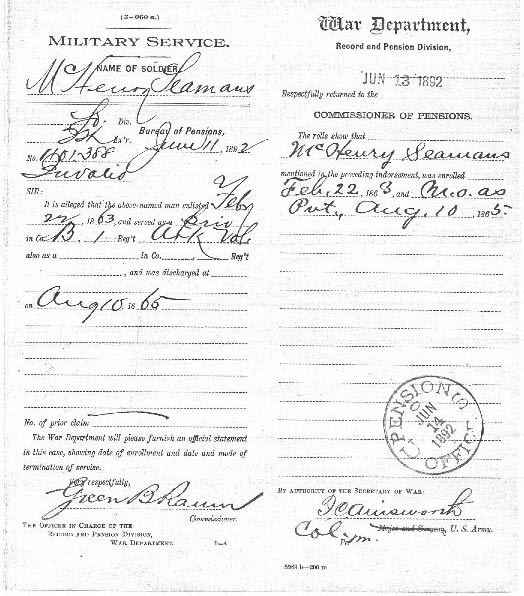 (3—060 a.)
MILITARY SERVICE.
NAME OF SOLDIER:
McHenry Seamans
So. Div.
Ex'r.
Bureau of Pensions,
June 11, 1892
No. 1101-388
Invalid
SIR:
It is alleged that the above-named man enlisted Feby
22, 1863, and served as a Priv
in Co. B. 1 Reg't Ark Vol.
also as a in Co. , Reg't
, and was discharged at
on Aug 10, 1865
No. of prior claim:
The War Department will please furnish an official statement
in this case, showing date of enrollment and date and mode of
termination of service.
Very respectfully,
Green B Raum
Commissioner.
THE OFFICER IN CHARGE OF THE
RECORD AND PENSION DIVISION,
WAR DEPARTMENT.
War Department,
Record and Pension Division,
JUN 13 1892
Respectfully returned to the
COMMISSIONER OF PENSIONS.
The rolls show that
McHenry Seamans
mentioned in the preceding indorsement, was enrolled
Feb. 22 1863, and M.O. as
Pvt., Aug. 10, 1865.
U.S. PENSION OFFICE
JUN
14
1892
BY AUTHORITY OF THE SECRETARY OF WAR:
F C Ainsworth
Col. Major and Surgeon, U. S. Army.
Per m.